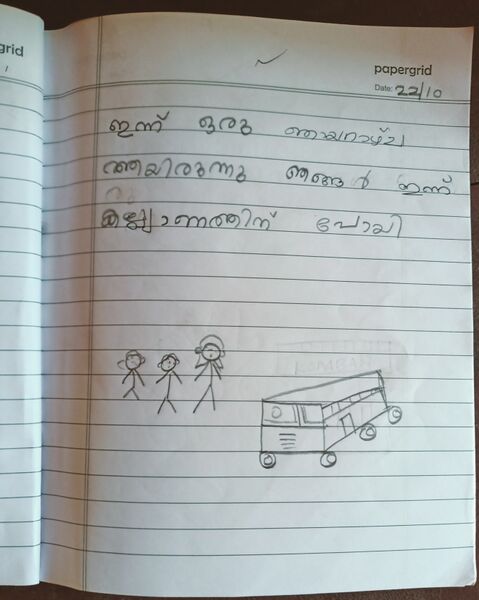 grid
papergrid
Date: 22/10
ഇന്ന് ഒരു ഞായറാഴ്ച
ആയിരുന്നു ഞങ്ങൾ ഇന്ന്
കല്യാണത്തിന് പോയി